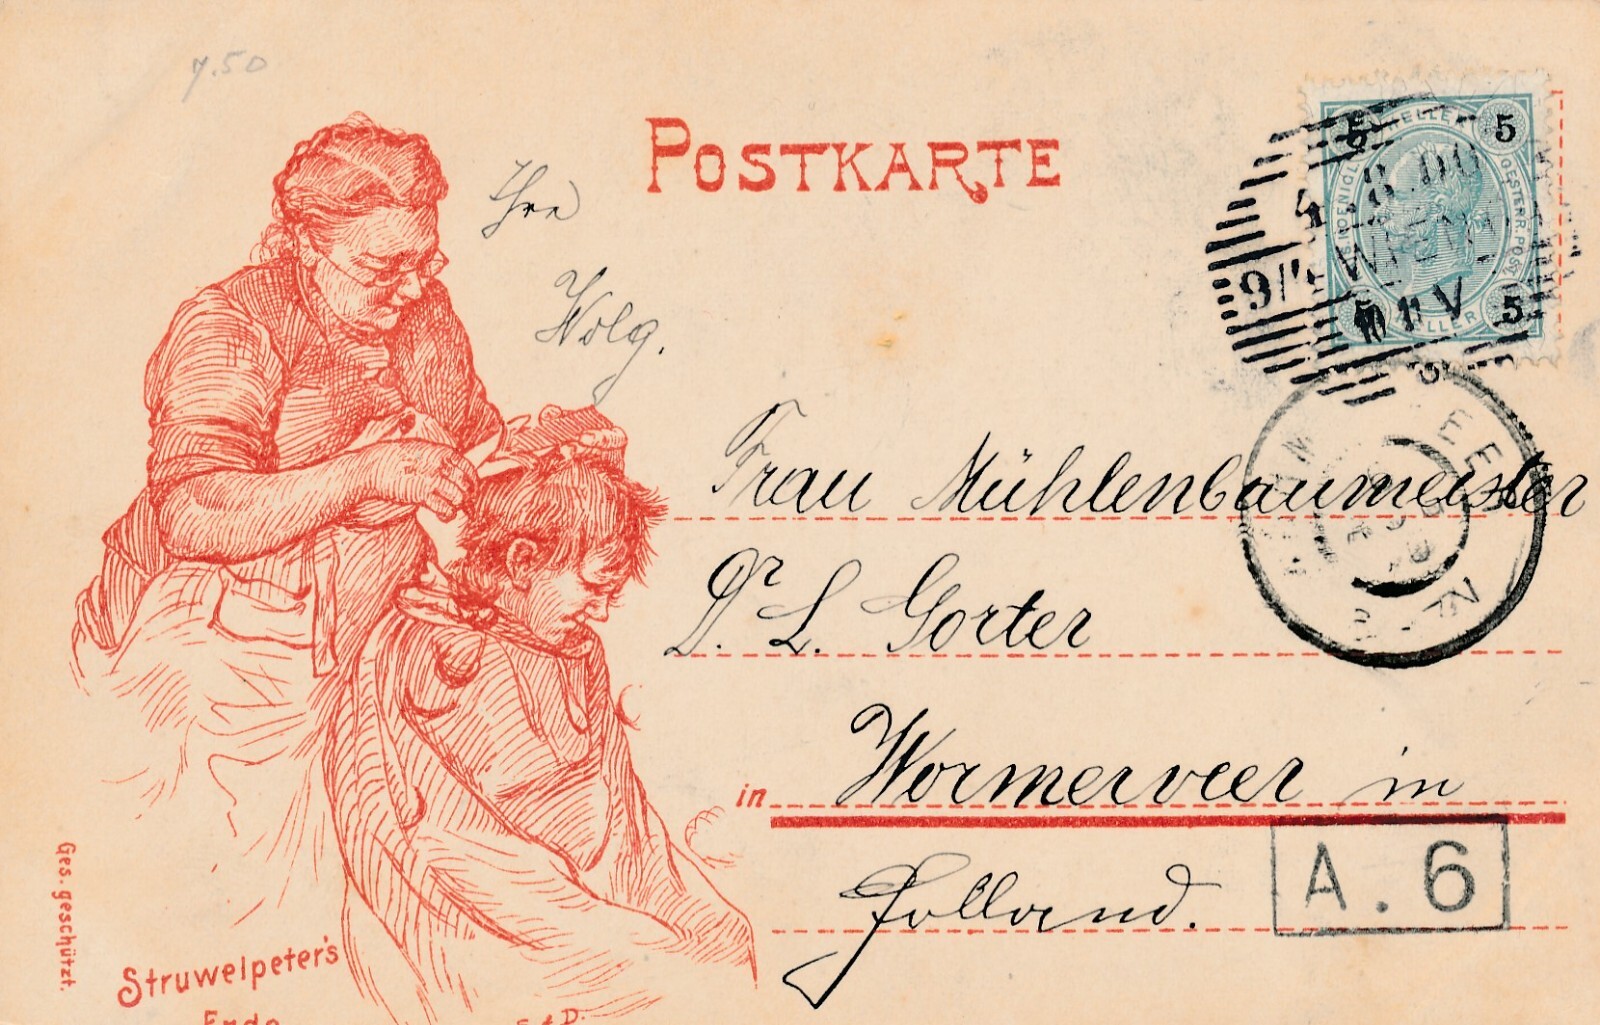 7.50
POSTKARTE
Ihre
Wolg.
5 HELLER 5
KOENIGL. OESTERR. POST
5 HELLER 5
4.8.00
WIEN
9/1
V
Frau Mühlenbaumeister
Dr. L. Gorter
in Wormerveer in
Holland.
A. 6
Ges. geschützt.
Struwelpeter's
Ende